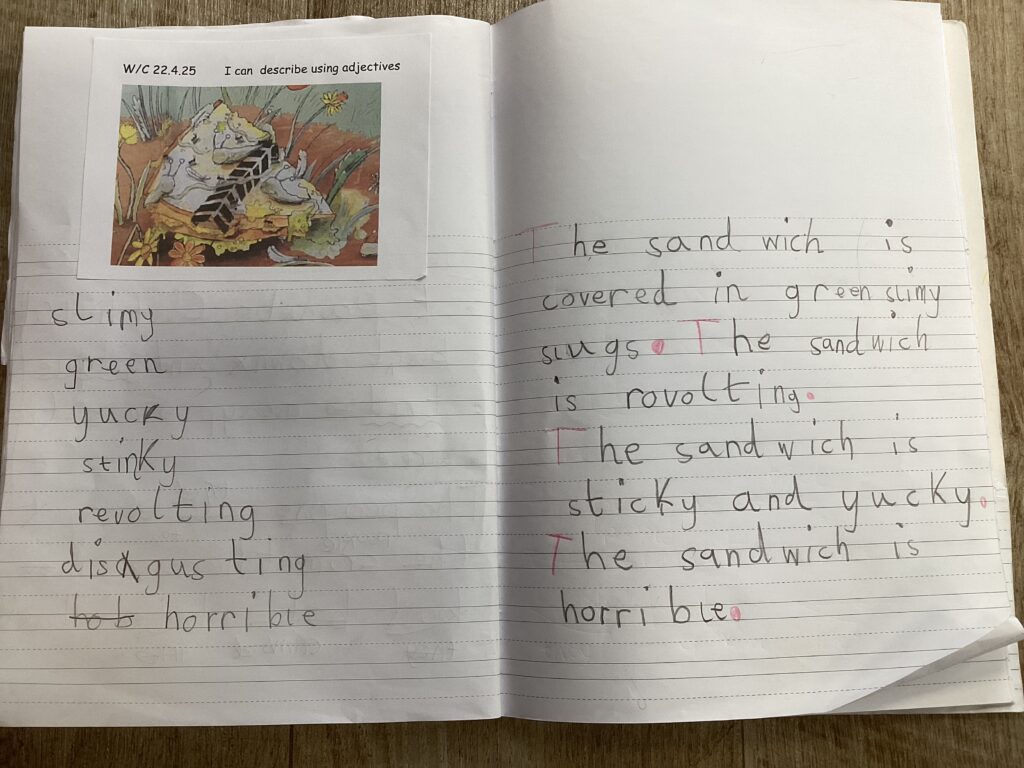 W/C 22.4.25 I can describe using adjectives
slimy
green
yucky
stinky
revolting
disgusting
horrible
The sandwich is
covered in green slimy
slugs. The sandwich
is rovolting.
The sandwich is
sticky and yucky.
The sandwich is
horrible.